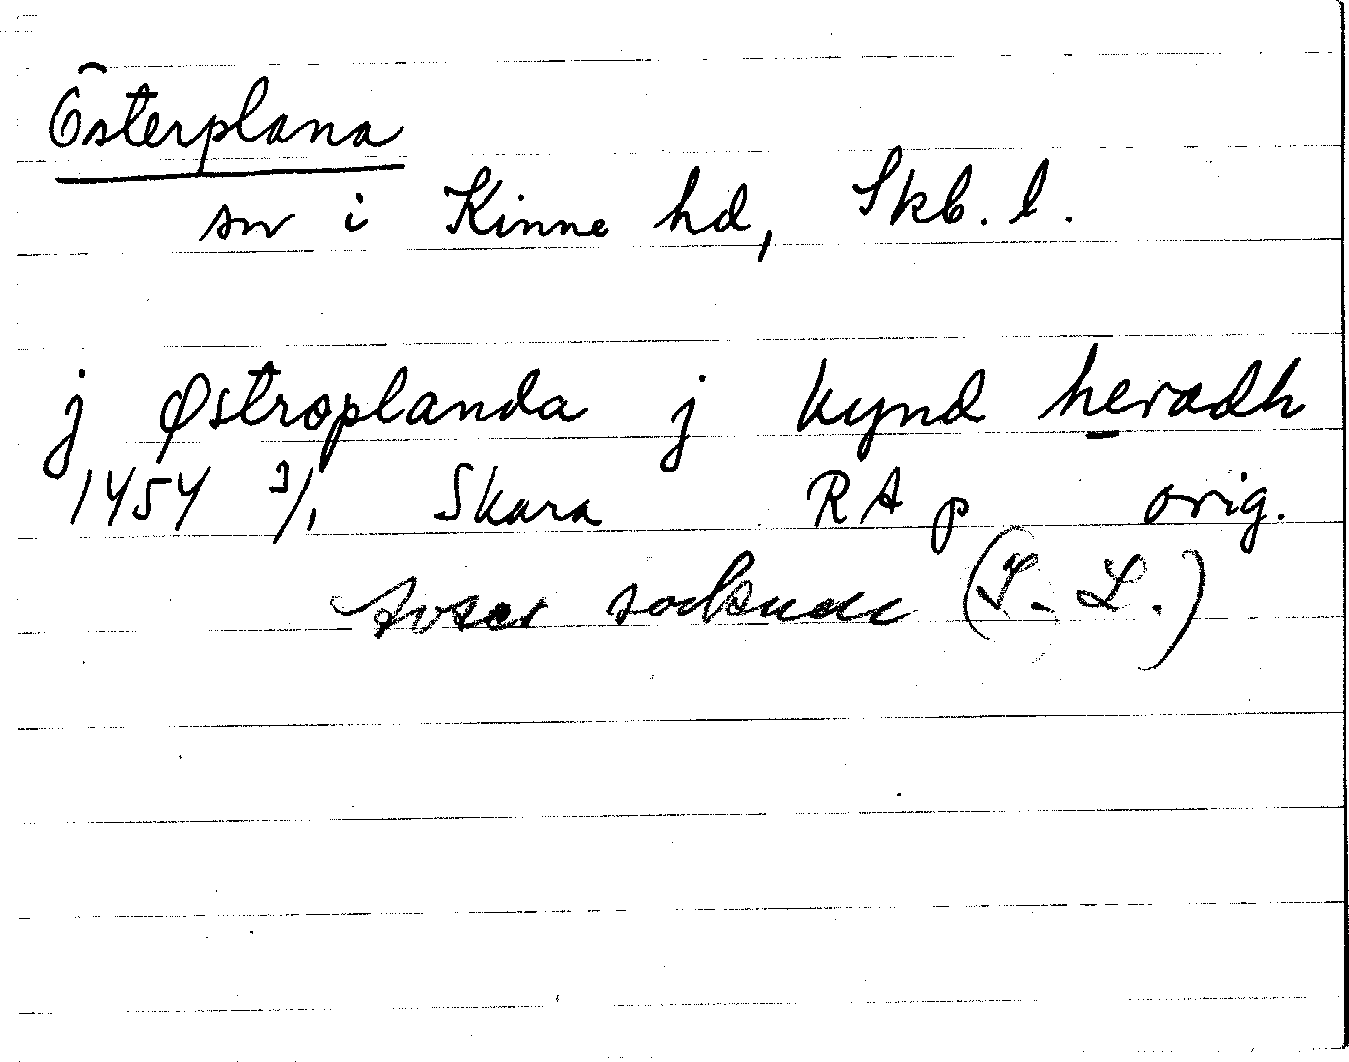 Österplana
sn i Kinne hd, Skb. l.
j Østroplanda j kynd heradh
1454 3/1 Skara RA p orig.
Avser socknen (I. L.)